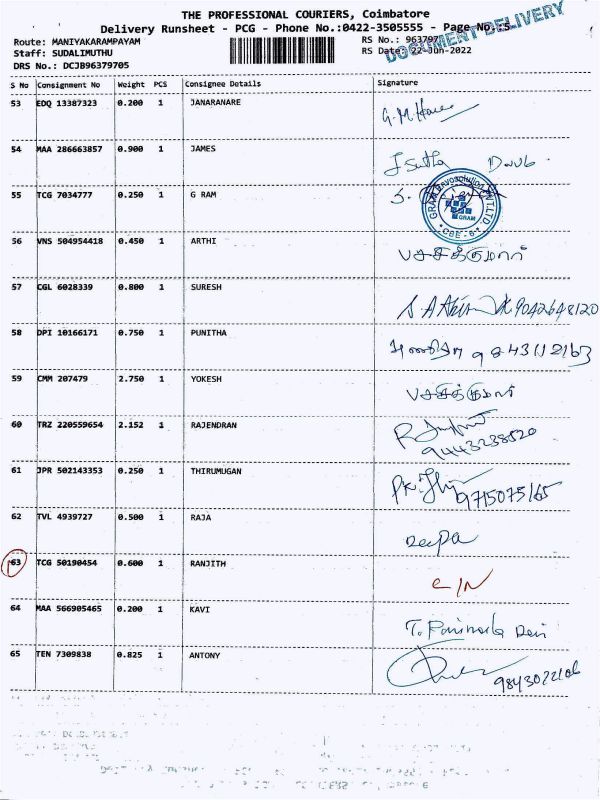 THE PROFESSIONAL COURIERS, Coimbatore
Delivery Runsheet - PCG - Phone No.:0422-3505555 - Page No.:5
DOCUMENT DELIVERY
Route: MANIYAKARAMPAYAM
RS No.: 963797
Staff: SUDALIMUTHU
RS Date: 22-Jun-2022
DRS No.: DCJB96379705
S No Consignment No Weight PCS Consignee Details Signature
53 EDQ 13387323 0.200 1 JANARANARE
54 MAA 286663857 0.900 1 JAMES
55 TCG 7034777 0.250 1 G RAM
GRAM CBE-6
56 VNS 504954418 0.450 1 ARTHI பசுபதிகுமார்
57 CGL 6028339 0.800 1 SURESH 9042648120
58 DPI 10166171 0.750 1 PUNITHA 9843112163
59 CMM 207479 2.750 1 YOKESH
60 TRZ 220559654 2.152 1 RAJENDRAN 9443238520
61 JPR 502143353 0.250 1 THIRUMUGAN 9715075165
62 TVL 4939727 0.500 1 RAJA Deepa
63 TCG 50190454 0.600 1 RANJITH C/N
64 MAA 566905465 0.200 1 KAVI
65 TEN 7309838 0.825 1 ANTONY 9843022106